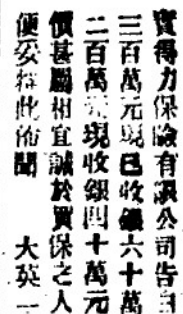 寶得力保險有限公司告白
三百萬元現已收銀六十萬
二百萬現收銀四十萬元
價甚屬相宜誠於買保之人
便安特此佈聞 大英一